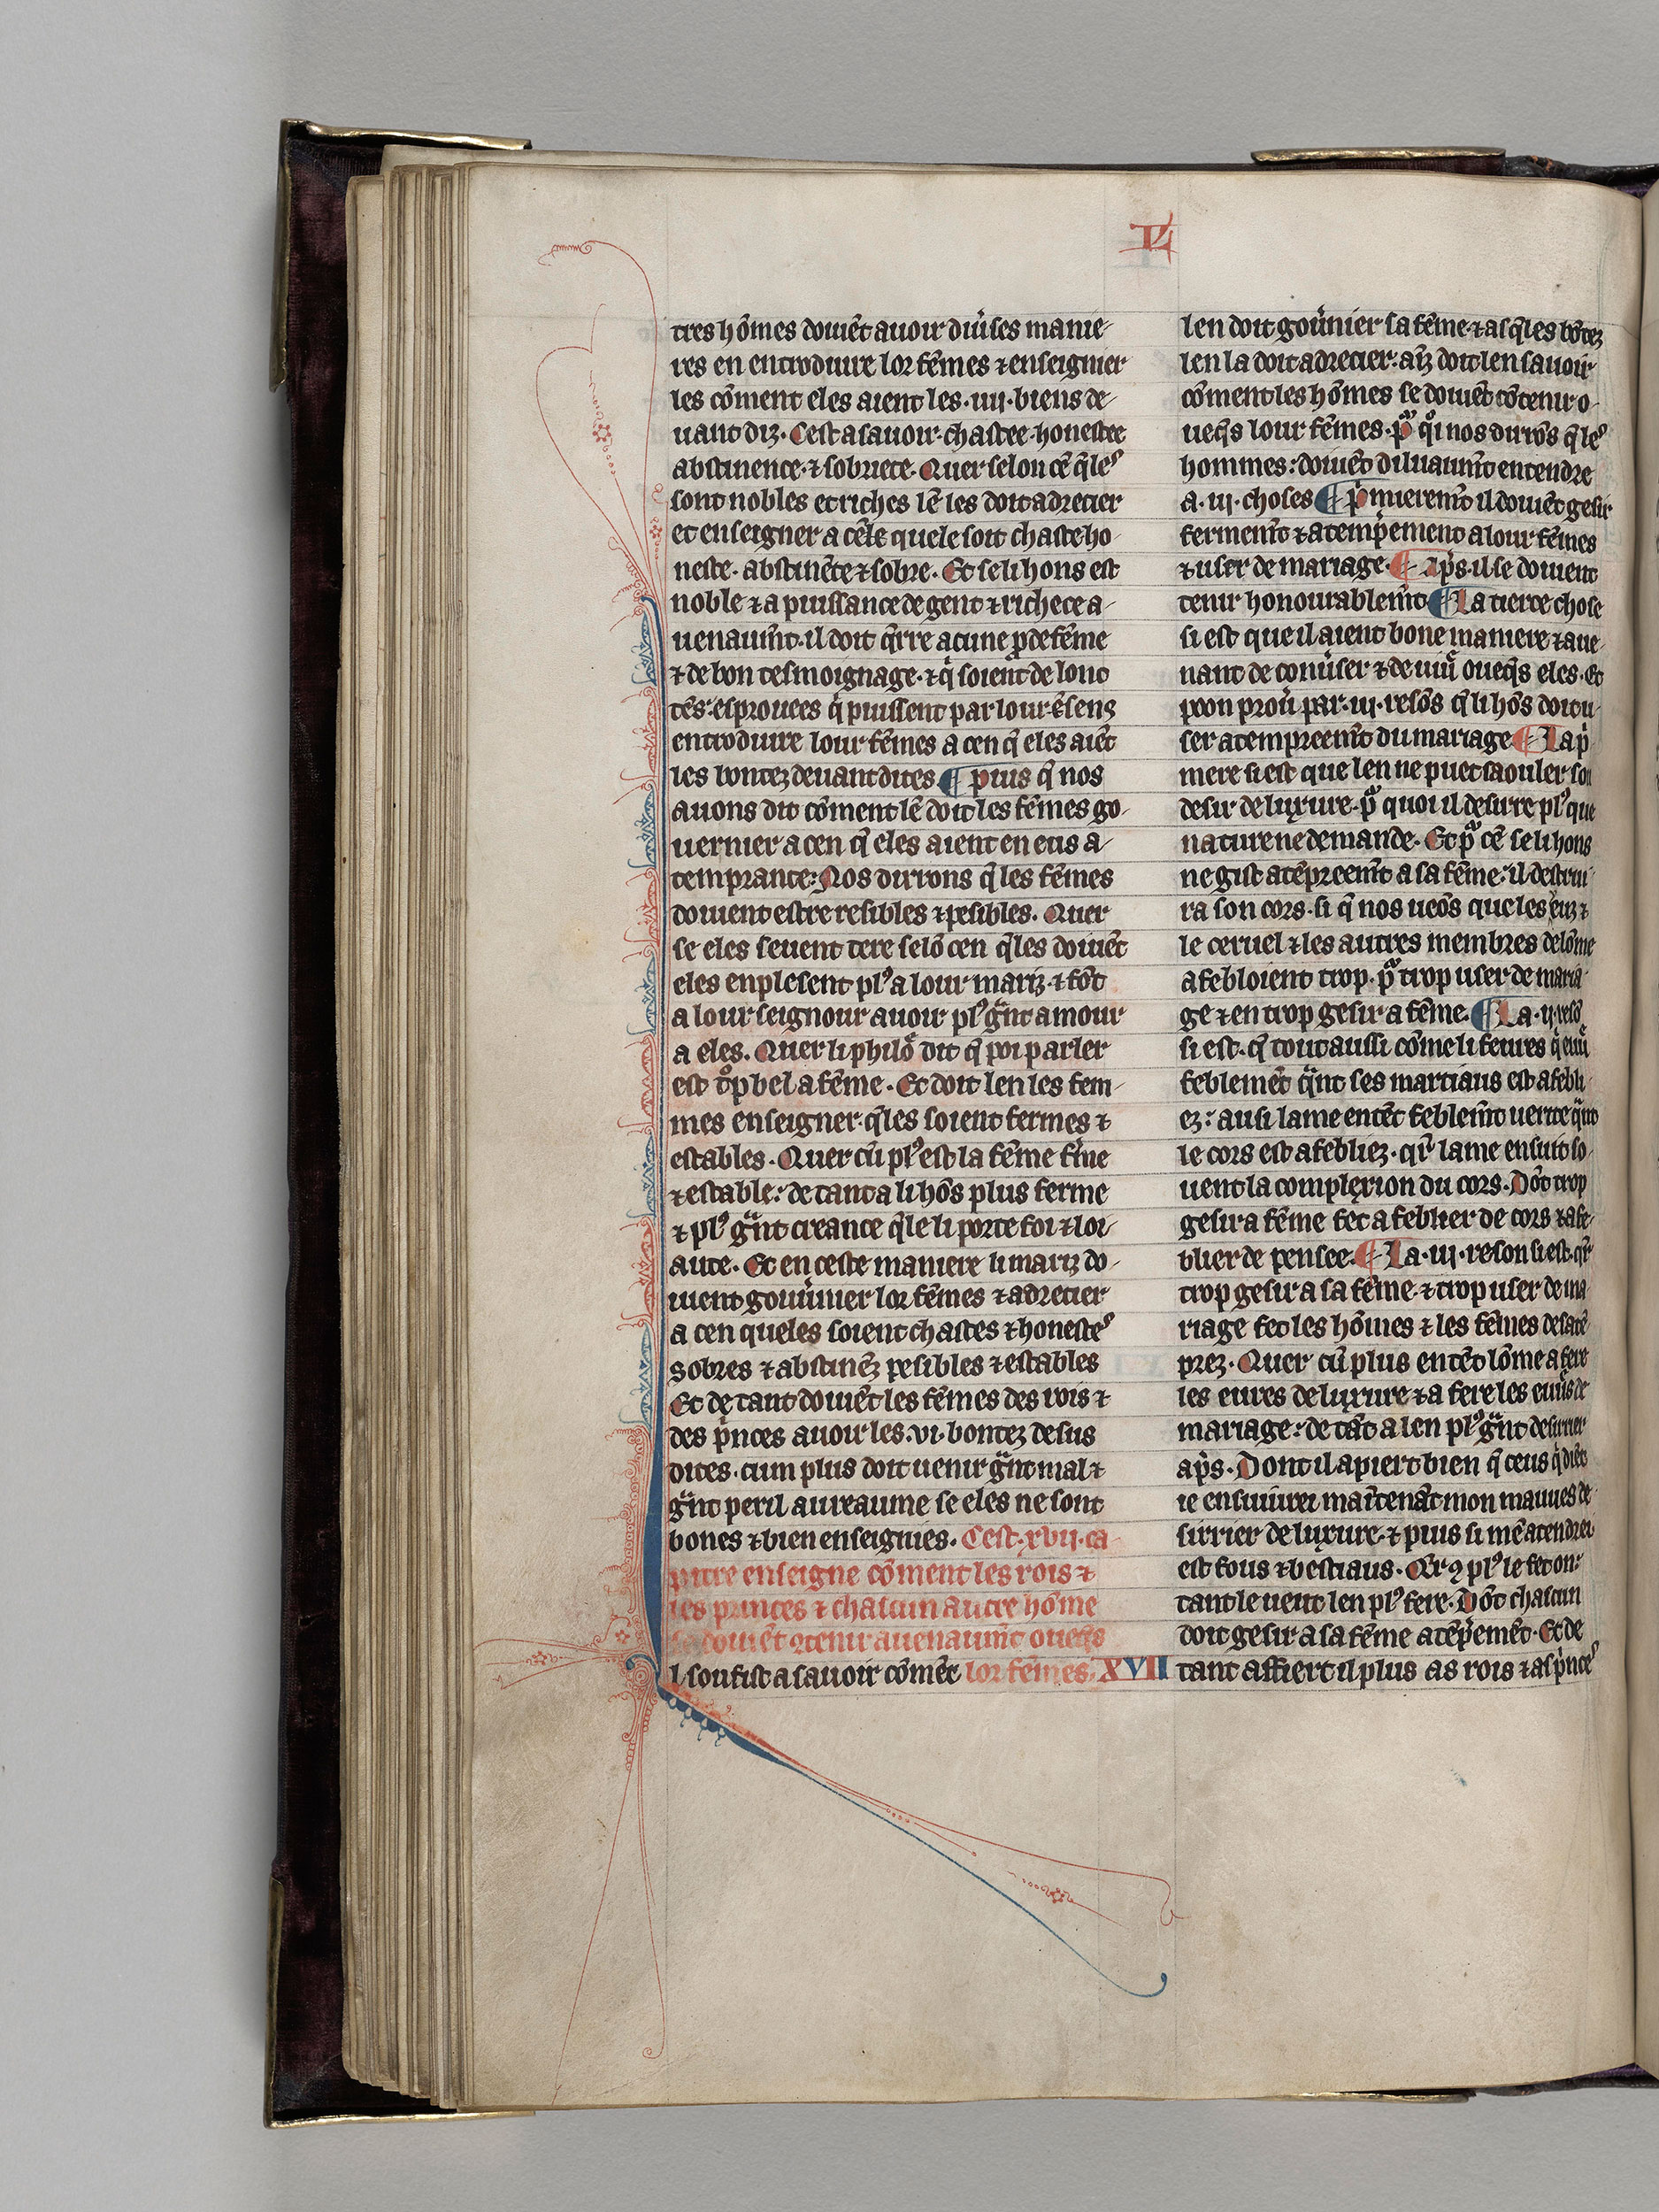 L
tres hōmes douiēt auoir diu̾ses manie-
res en entroduire lor fēmes ⁊ enseignier
les cōment eles aient les .iiii. biens de-
uant diz. Cest a sauoir. chastee. honestee
abstinence. ⁊ sobriete. Quer selon cē q̄ leˢ
sont nobles et riches lē les doit adrecier
et enseigner a cēle quele soit chaste ho-
neste. abstinēte ⁊ sobre. Et se li hons est
noble ⁊ a puissance de gent ⁊ richece a-
uenaum̄t. il doit q̄rre acune p̄defēme
⁊ de bon tesmoignage. ⁊ qͥ soient de lonc
tēs. esprouees qͥ puissent par lour ēsenz
entroduire lour fēmes a cen q̄ eles aiēt
les bontez deuant dites ¶ Puis q̄ nos
auons dit cōment lē doit les fēmes go-
uernier a cen q̄ eles aient en eus a-
temprance: Nos dirrons q̄ les fēmes
douient estre tesibles ⁊ pesibles. Quer
se eles seuent tere selō cen q̄les douiēt
eles enplesent plꝰ a lour mariz. ⁊ fōt
a lour seignour auoir plꝰ gͣnt amour
a eles. Quer li philō dit q̄ poi parler
est tͦp bel a fēme. Et doit len les fem-
mes enseigner. q̄les soient fermes ⁊
estables. Quer cū plꝰ est la fēme f̄me
⁊ estable: de tant a li hōs plus ferme
⁊ plꝰ gͣnt creance q̄le li porte foi ⁊ loi-
aute. Et en ceste maniere li mariz do-
uient gouu̾nier lor fēmes ⁊ adrecier
a cen queles soient chastes ⁊ honesteˢ
sobres ⁊ abstinēz pesibles ⁊ estables
Et de tant douiēt les fēmes des rois ⁊
des p̾nces auoir les .vi. bontez desus
dites. cum plus doit uenir gͣnt mal ⁊
gͣnt peril au reaume se eles ne sont
bones ⁊ bien enseignies. Cest .xvii. ca-
pitre enseigne cōment les rois ⁊
les princes ⁊ chascun autre hōme
se douiēt ꝯtenir auenaum̄t oueq̄s
l soufist a sauoir cōmēt lor fēmes. XVII
len doit gou̾nier sa fēme. ⁊ as q̄les bōtez
len la doit adrecier. auz doit len sauoir
cōment les hōmes se douiēt cōtenir o-
ueq̄s lour fēmes. pͣ qͦi nos dirōs q̄ leˢ
hommes: douiēt diluaum̄t entendre
a .iii. choses ¶ P̾mierem̄t il douiēt gesir
ferment̄ ⁊ atemp̾ement a lour fēmes
⁊ user de mariage. ¶ Ap̾s. il se douient
tenir honourablem̄t ¶ La tierce chose
si est que il aient bone maniere ⁊ aue-
nant de conu̾ser ⁊ de uiu̾ oueq̄s eles. Et
poon prou̾ par .iii. resōs q̄ li hōs doit u-
ser atempreem̄t du mariage ¶ La p̾-
mere si est que len ne puet saouler son
desir de luxure. pͣ quoi il desire plꝰ que
nature ne demande. Et pͣ cē se li hons
ne gist atēpreem̄t a sa fēme: il destrui-
ra son cors. si q̄ nos ueōs que les euz ⁊
le ceruel ⁊ les autres membres de lōme
afebloient trop. pͣ trop user de maria-
ge ⁊ en trop gesir a fēme. ¶ La .ii. resō
si est. q̄ tout aussi cōme li feures qͥ euu̾
feblemēt qͣnt ses martiaus est afebli-
ez: ausi lame entēt feblem̄t uerite qͣnt
le cors est afebliez. qr̄ lame ensuit so-
uent la complexion du cors. Dōt trop
gesir a fēme fet afeblier de cors ⁊ afe-
blier de pensee. ¶ La .iii. reson si est. qr̄
trop gesir a sa fēme. ⁊ trop user de ma-
riage fet les hōmes ⁊ les fēmes desatē-
prez. Quer cū plus entēt lōme a fere
les eures de luxure ⁊ a fere les euu̾s de
mariage: de tāt a len plꝰ gͣnt desirrier
ap̾s. Dont il apiert bien q̄ ceus qͥ diēt
ie ensuiurei maītenāt mon mauues de-
sirrier de luxure. ⁊ puis si mē atendrei
est fous ⁊ bestiaus. Qr̄ ꝯ plꝰ le fet on:
tant le ueut len plꝰ fere. Dōt chascun
doit gesir a sa fēme atēp̾emēt. Et de
tant affiert il plus as rois ⁊ as p̾nceˢ